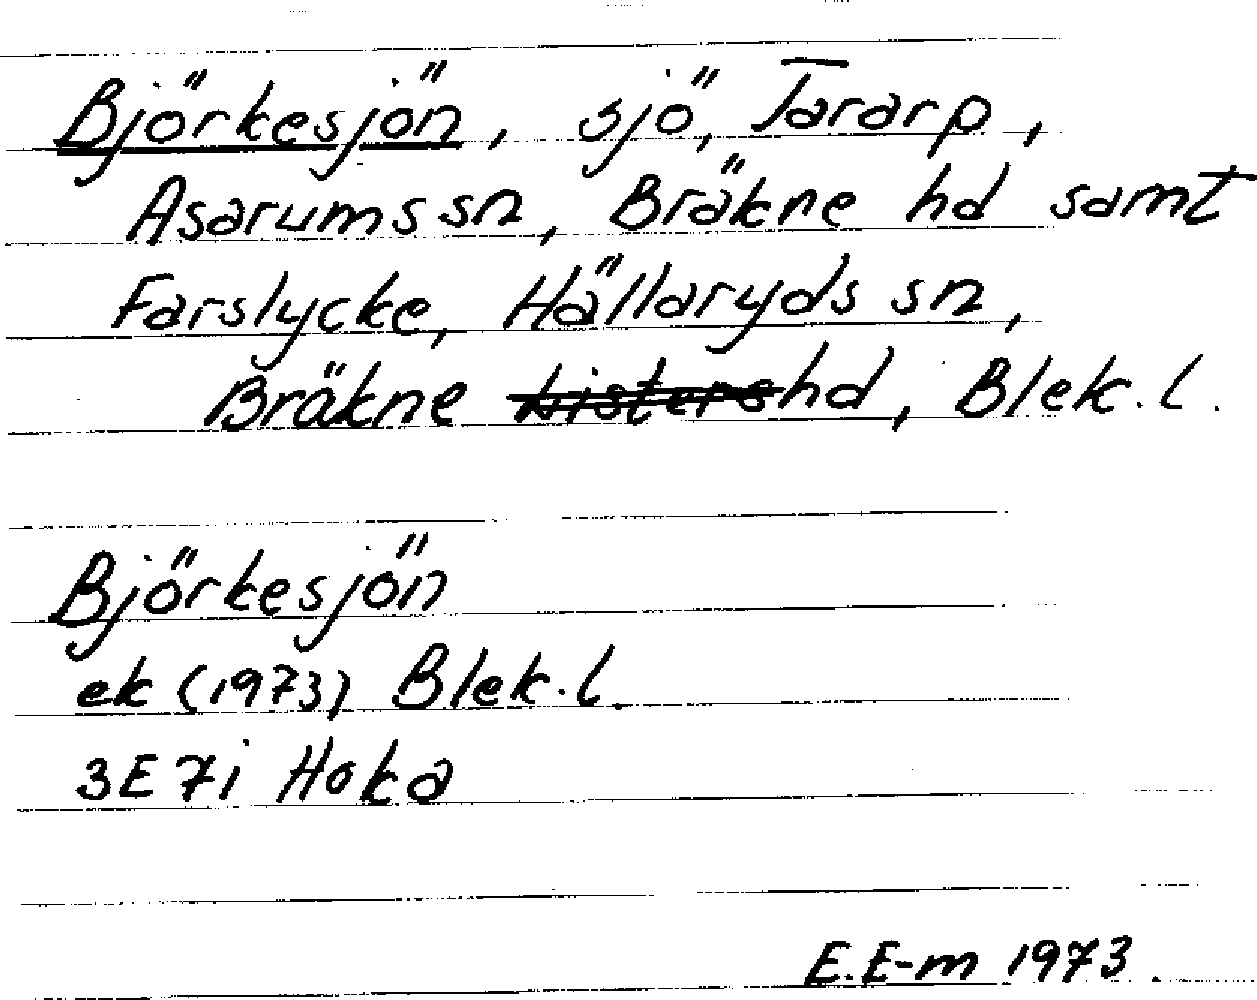 Björkesjön, sjö, Tararp,
Asarums sn, Bräkne hd samt
Farslycke, Hällaryds sn,
Bräkne Listers hd, Blek. l.
Björkesjön
ek (1973) Blek. l.
3E 7i Hoka
E. E-m 1973.